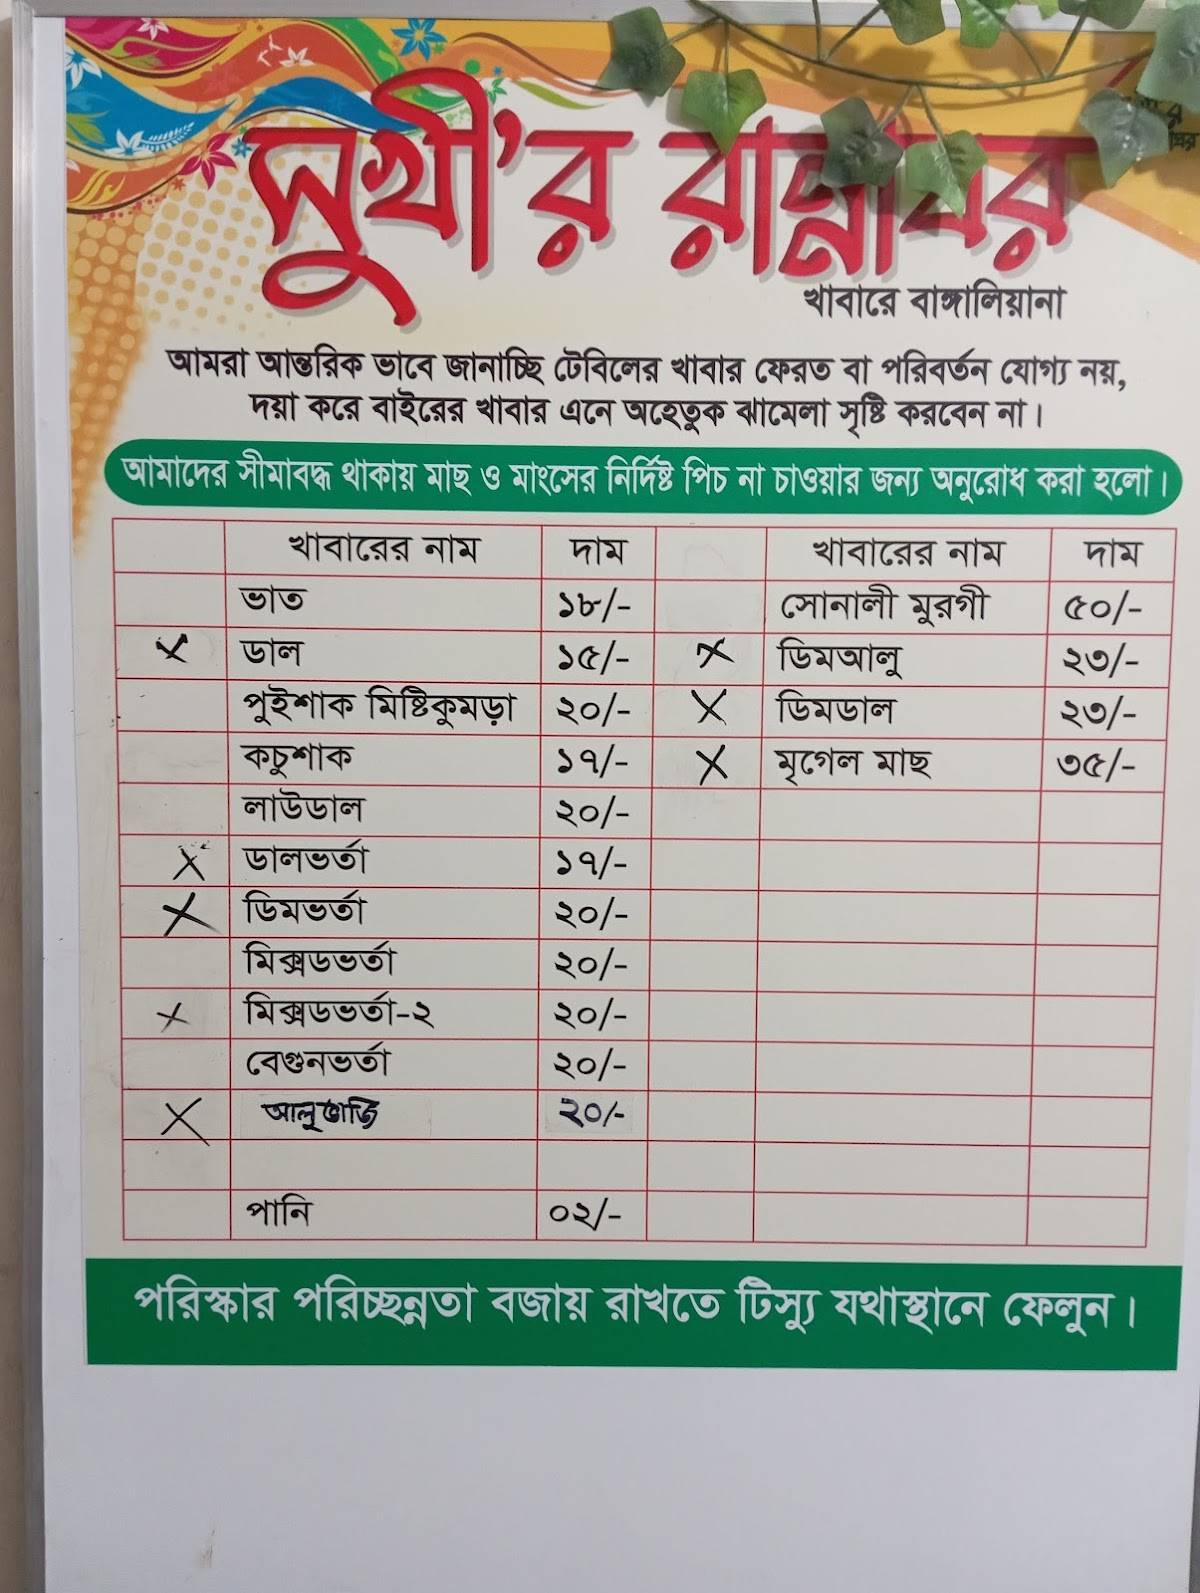 সুখী'র রান্নাঘর
খাবারে বাঙ্গালিয়ানা
আমরা আন্তরিক ভাবে জানাচ্ছি টেবিলের খাবার ফেরত বা পরিবর্তন যোগ্য নয়,
দয়া করে বাইরের খাবার এনে অহেতুক ঝামেলা সৃষ্টি করবেন না।
আমাদের সীমাবদ্ধ থাকায় মাছ ও মাংসের নির্দিষ্ট পিচ না চাওয়ার জন্য অনুরোধ করা হলো।
খাবারের নাম দাম খাবারের নাম দাম
ভাত ১৮/- সোনালী মুরগী ৫০/-
X ডাল ১৫/- X ডিমআলু ২৩/-
পুইশাক মিষ্টিকুমড়া ২০/- X ডিমডাল ২৩/-
কচুশাক ১৭/- X মৃগেল মাছ ৩৫/-
লাউডাল ২০/-
X ডালভর্তা ১৭/-
X ডিমভর্তা ২০/-
মিক্সডভর্তা ২০/-
X মিক্সডভর্তা-২ ২০/-
বেগুনভর্তা ২০/-
X আলুভাজি ২০/-
পানি ০২/-
পরিস্কার পরিচ্ছন্নতা বজায় রাখতে টিস্যু যথাস্থানে ফেলুন।